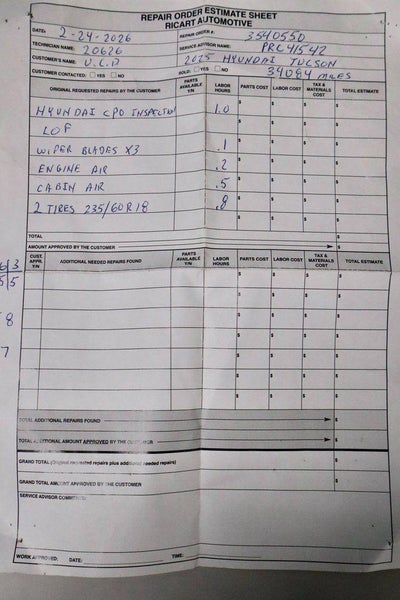 REPAIR ORDER ESTIMATE SHEET
RICART AUTOMOTIVE
DATE: 2-24-2026 REPAIR ORDER #: 3540550
TECHNICIAN NAME: 20626 SERVICE ADVISOR NAME: PRC41542
CUSTOMER'S NAME: U.C.D 2025 HYUNDAI TUCSON
CUSTOMER CONTACTED: YES NO SOLD: YES NO 34084 MILES
ORIGINAL REQUESTED REPAIRS BY THE CUSTOMER PARTS AVAILABLE Y/N LABOR HOURS PARTS COST LABOR COST TAX & MATERIALS COST TOTAL ESTIMATE
HYUNDAI CPO INSPECTION 1.0 $ $ $ $
LOF $ $ $ $
WIPER BLADES X3 .1 $ $ $ $
ENGINE AIR .2 $ $ $ $
CABIN AIR .5 $ $ $ $
2 TIRES 235/60R18 .8 $ $ $ $
TOTAL $
AMOUNT APPROVED BY THE CUSTOMER $
CUST. APPR. Y/N ADDITIONAL NEEDED REPAIRS FOUND PARTS AVAILABLE Y/N LABOR HOURS PARTS COST LABOR COST TAX & MATERIALS COST TOTAL ESTIMATE
$ $ $ $
$ $ $ $
$ $ $ $
$ $ $ $
$ $ $ $
$ $ $ $
$ $ $ $
TOTAL ADDITIONAL REPAIRS FOUND $
TOTAL ADDITIONAL AMOUNT APPROVED BY THE CUSTOMER $
GRAND TOTAL (Original requested repairs plus additional needed repairs) $
GRAND TOTAL AMOUNT APPROVED BY THE CUSTOMER $
SERVICE ADVISOR COMMENTS:
WORK APPROVED: DATE: TIME:
6/3
5/5
8
7